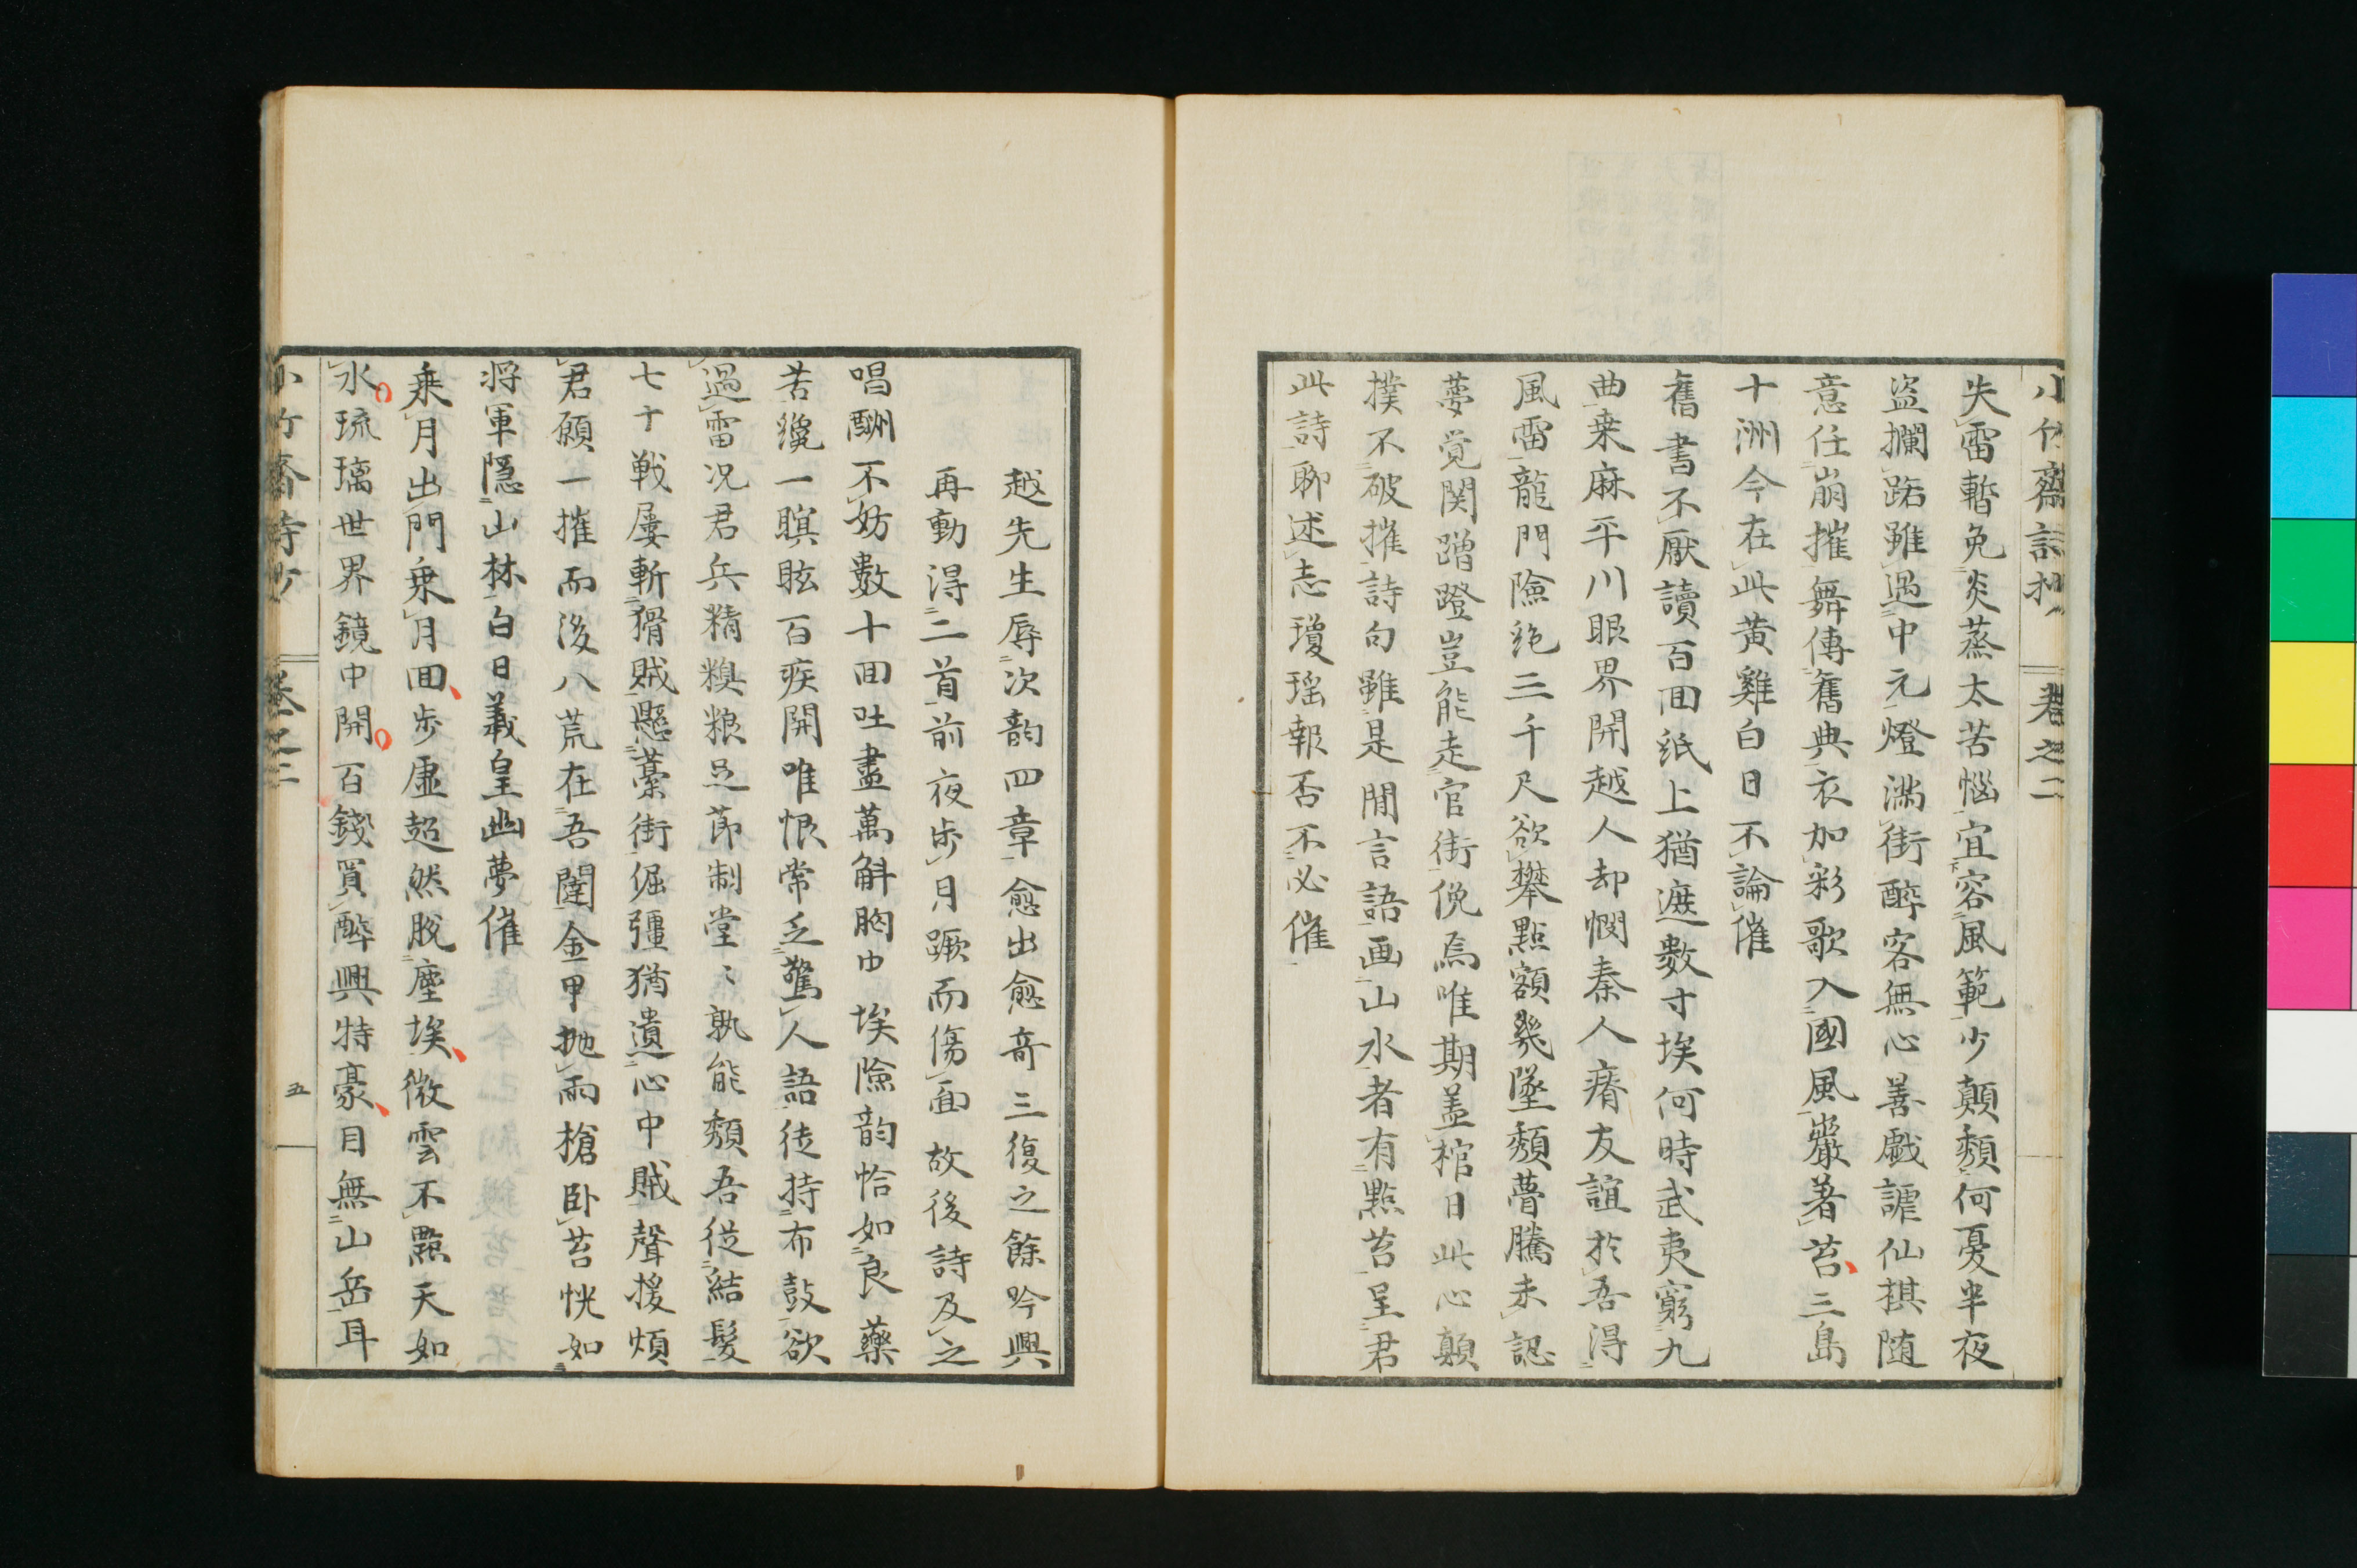 小竹齋詩抄 卷之二
失雷暫免炎蒸太苦惱宜容風範少顛頽何憂半夜
盜攔路雖過中元燈滿街醉客無心善戲謔仙棋随
意任崩摧舞傳舊典衣加彩歌入國風巖著苔三島
十洲今在此黄雞白日不論催
舊書不厭讀百回紙上猶遮數寸埃何時武夷窮九
曲桒麻平川眼界開越人却憫秦人瘠友誼於吾得
風雷龍門險絶三千尺欲攀點額幾墜頽瞢騰未認
夢覚関蹭蹬豈能走官街俛焉唯期盖棺日此心顛
撲不破摧詩句雖是閒言語画山水者有點苔呈君
此詩聊述志瓊瑶報否不必催
越先生辱次韵四章愈出愈竒三復之餘吟興
再動得二首前夜步月蹶而傷面故後詩及之
唱酬不妨數十回吐盡萬斛胸中埃險韵恰如良藥
苦纔一瞑眩百疾開唯恨常乏驚人語徒持布鼓欲
過雷况君兵精糗粮足節制堂〻孰能頽吾従結髪
七十戦屡斬猾賊懸藁街倔彊猶遺心中賊聲援煩
君願一摧而後八荒在吾闥金甲抛雨槍臥苔恍如
将軍隠山林白日羲皇幽夢催
乘月出門乗月回步虚超然脱塵埃微雲不點天如
水琉璃世界鏡中開百錢買醉興特豪目無山岳耳
小竹齋詩抄 卷之二 五